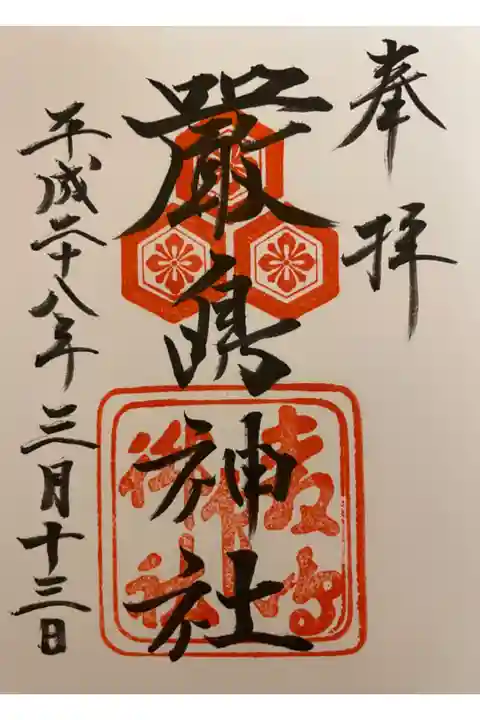 奉拝
嚴島神社
平成二十八年三月十三日